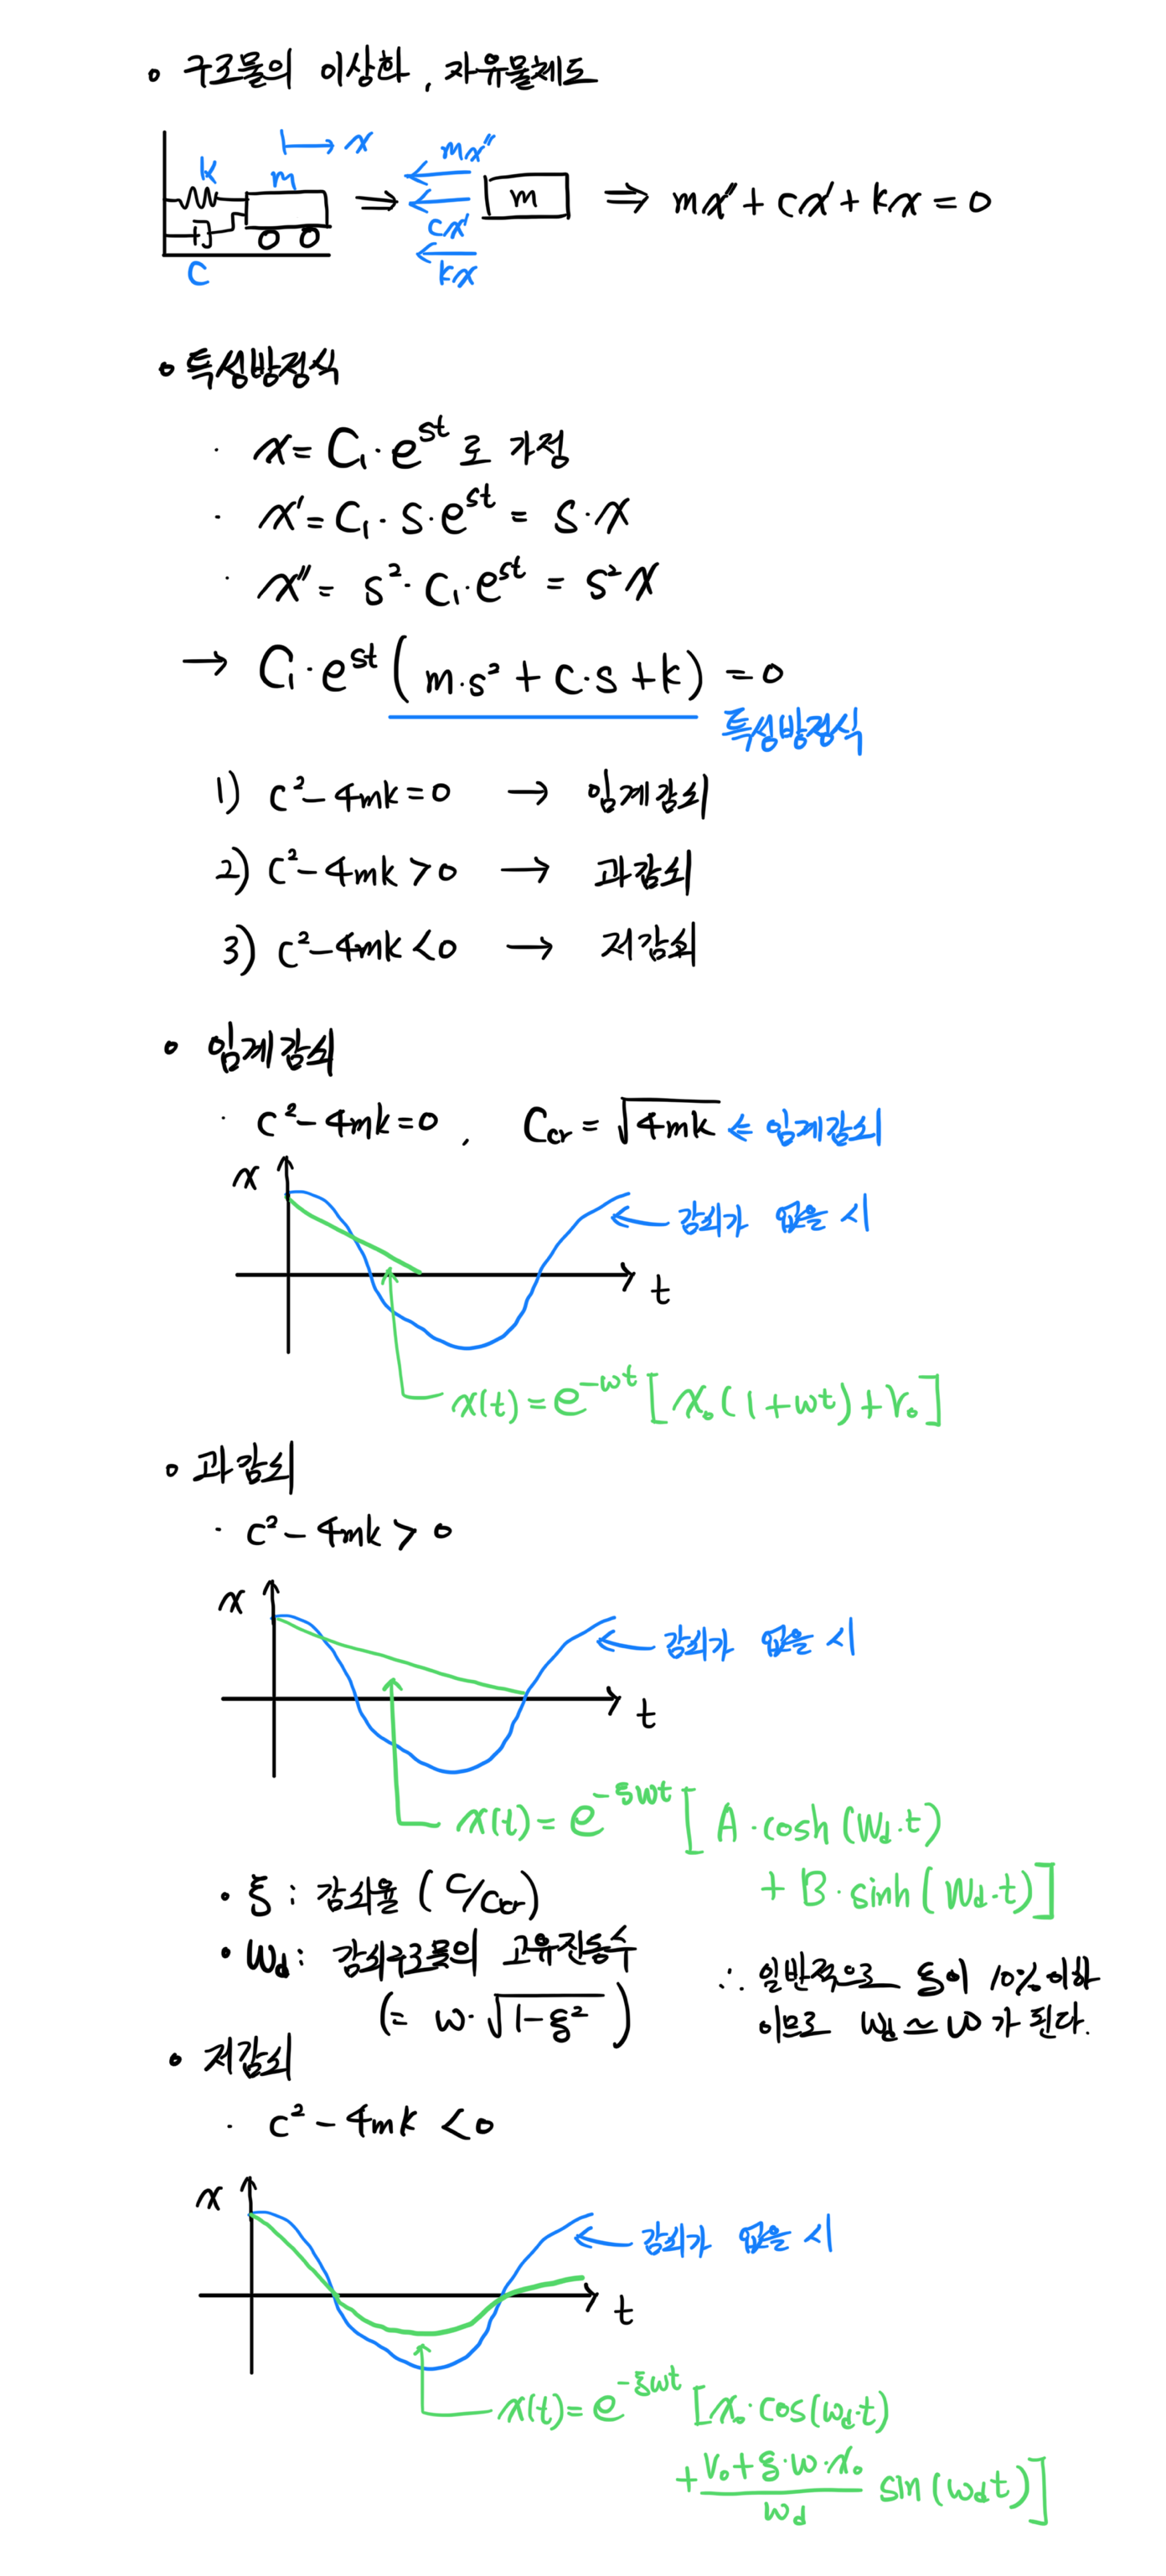 구조물의 이상화, 자유물체도
x
k m
c
mx''
cx'
kx
m
⇒ mx'' + cx' + kx = 0
특성방정식
· x = C₁·e^st 로 가정
· x' = C₁·s·e^st = s·x
· x'' = s²·C₁·e^st = s²x
→ C₁·e^st (m·s² + c·s + k) = 0
특성방정식
1) c² - 4mk = 0 → 임계감쇠
2) c² - 4mk > 0 → 과감쇠
3) c² - 4mk < 0 → 저감쇠
임계감쇠
· c² - 4mk = 0, Ccr = √4mk ← 임계감쇠
x
← 감쇠가 없을 시
t
x(t) = e^-wt [x₀(1+wt)+V₀]
과감쇠
· c² - 4mk > 0
x
← 감쇠가 없을 시
t
x(t) = e^-ξwt [A·cosh(Wd·t)
+ B·sinh(Wd·t)]
· ξ : 감쇠율 (C/Ccr)
· Wd : 감쇠구조물의 고유진동수
(= w·√1-ξ²)
∴ 일반적으로 ξ이 10%이하
이므로 wd ~ w가 된다.
저감쇠
· c² - 4mk < 0
x
← 감쇠가 없을 시
t
x(t) = e^-ξwt [x₀·cos(wd·t)
+ (V₀+ξ·w·x₀)/wd sin(wd t)]